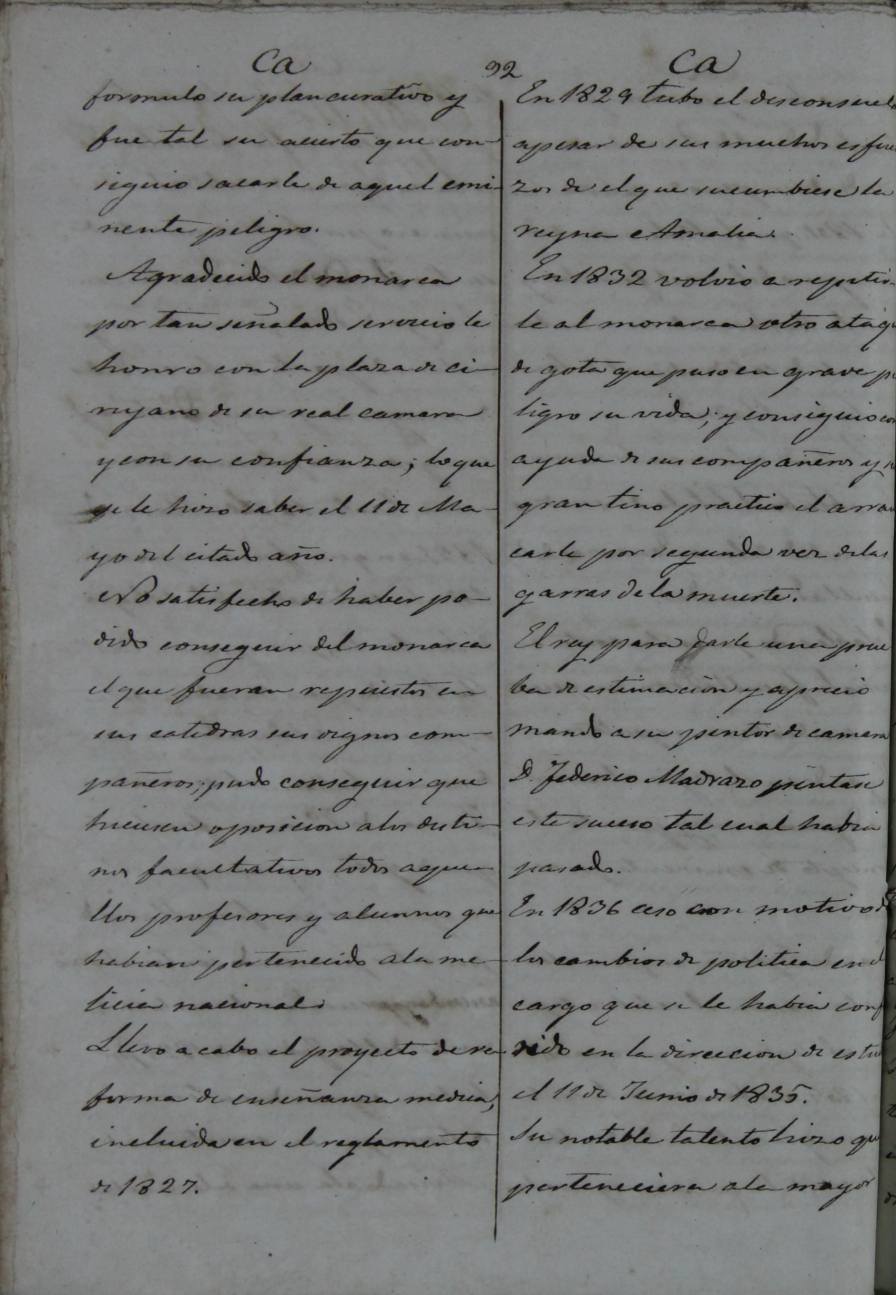 Ca
92
Ca
formulo su plan curativo y
fue tal su acierto que con-
siguio sacarle de aquel emi-
nente peligro.
Agradecido el monarca
por tan señalado servicio le
honro con la plaza de ci-
rujano de su real camara
y con su confianza; lo que
se le hizo saber el 11 de Ma-
yo del citado año.
No satisfecho de haber po-
dido conseguir del monarca
el que fueran repuestos en
sus catedras sus dignos com-
pañeros; pudo conseguir que
hiciesen oposicion a los desti-
nos facultativos todos aque-
llos profesores y alumnos que
habian pertenecido a la me-
licia nacional.
Llevo a cabo el proyecto de re-
forma de enseñanza medica,
incluida en el reglamento
de 1827.
En 1829 tubo el desconsuelo
apesar de sus muchos esfue
zos de el que sucumbiese la
reyna Amalia.
En 1832 volvio a repetir-
le al monarca otro ataq
de gota que puso en grave pe
ligro su vida; y consiguio con
ayuda de sus compañeros y su
gran tino practico el arran
carle por segunda vez de las
garras de la muerte.
El rey para darle una prue
ba de estimacion y aprecio
mando a su pintor de camara
D. Federico Madrazo pintase
este suceso tal cual habia
pasado.
En 1836 ceso con motivo d
los cambios de politica en el
cargo que se le habia conf
rido en la direccion de estu
el 11 de Junio de 1835.
Su notable talento hizo que
perteneciera a la mayor